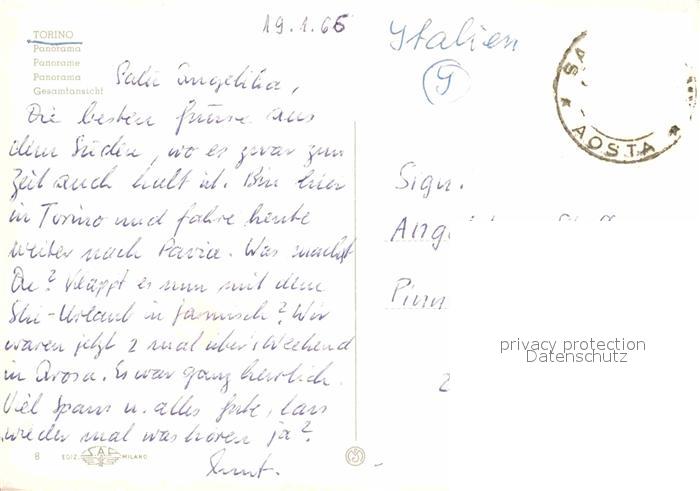 19.1.66
TORINO
Panorama
Panorame
Panorama
Gesamtansicht
Italien
Salü Angelika,
Die besten Grüsse aus
dem Süden, wo es zwar zur
Zeit auch kalt ist. Bin hier
in Torino und fahre heute
weiter nach Pavia. Was machst
Du? Klappt es nun mit dem
Ski-Urlaub in ? Wir
waren jetzt 2 mal über's Weekend
in Arosa. Es war ganz herrlich.
Viel Spass u. alles Gute, lass
wieder mal was hören ja?
8 EDIZ. S.A.C. MILANO
AOSTA
Sign.
Ang
Pinn
privacy protection
Datenschutz
2